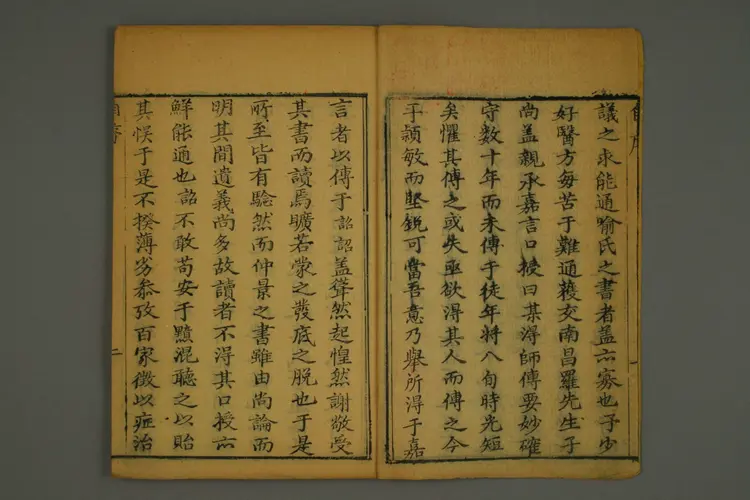 議之求能通喻氏之書者蓋亦寡也予少
好醫方每苦于難通獲交南昌羅先生子
尚蓋親承嘉言口授曰某得師傳要妙確
守數十年而未傳于徒年將八旬時光短
矣懼其傳之或失亟欲得其人而傳之今
子穎敏而堅銳可當吾意乃舉所得于嘉
言者以傳于詔詔蓋聳然起惶然謝敬受
其書而讀焉曠若蒙之發底之脫也于是
所至皆有驗然而仲景之書雖由尚論而
明其間遺義尚多故讀者不得其口授亦
鮮能通也詔不敢苟安于黯混聽之以貽
其悞于是不揆薄劣叅攷百家徵以症治
自序
二